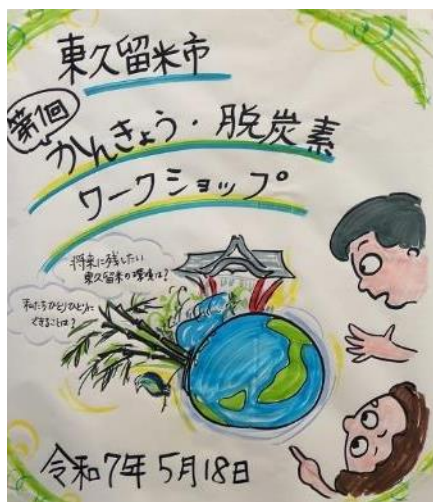 東久留米市
第1回
かんきょう・脱炭素
ワークショップ
将来に残したい
東久留米の環境は?
私たちひとりひとりに
できることは?
令和7年5月18日